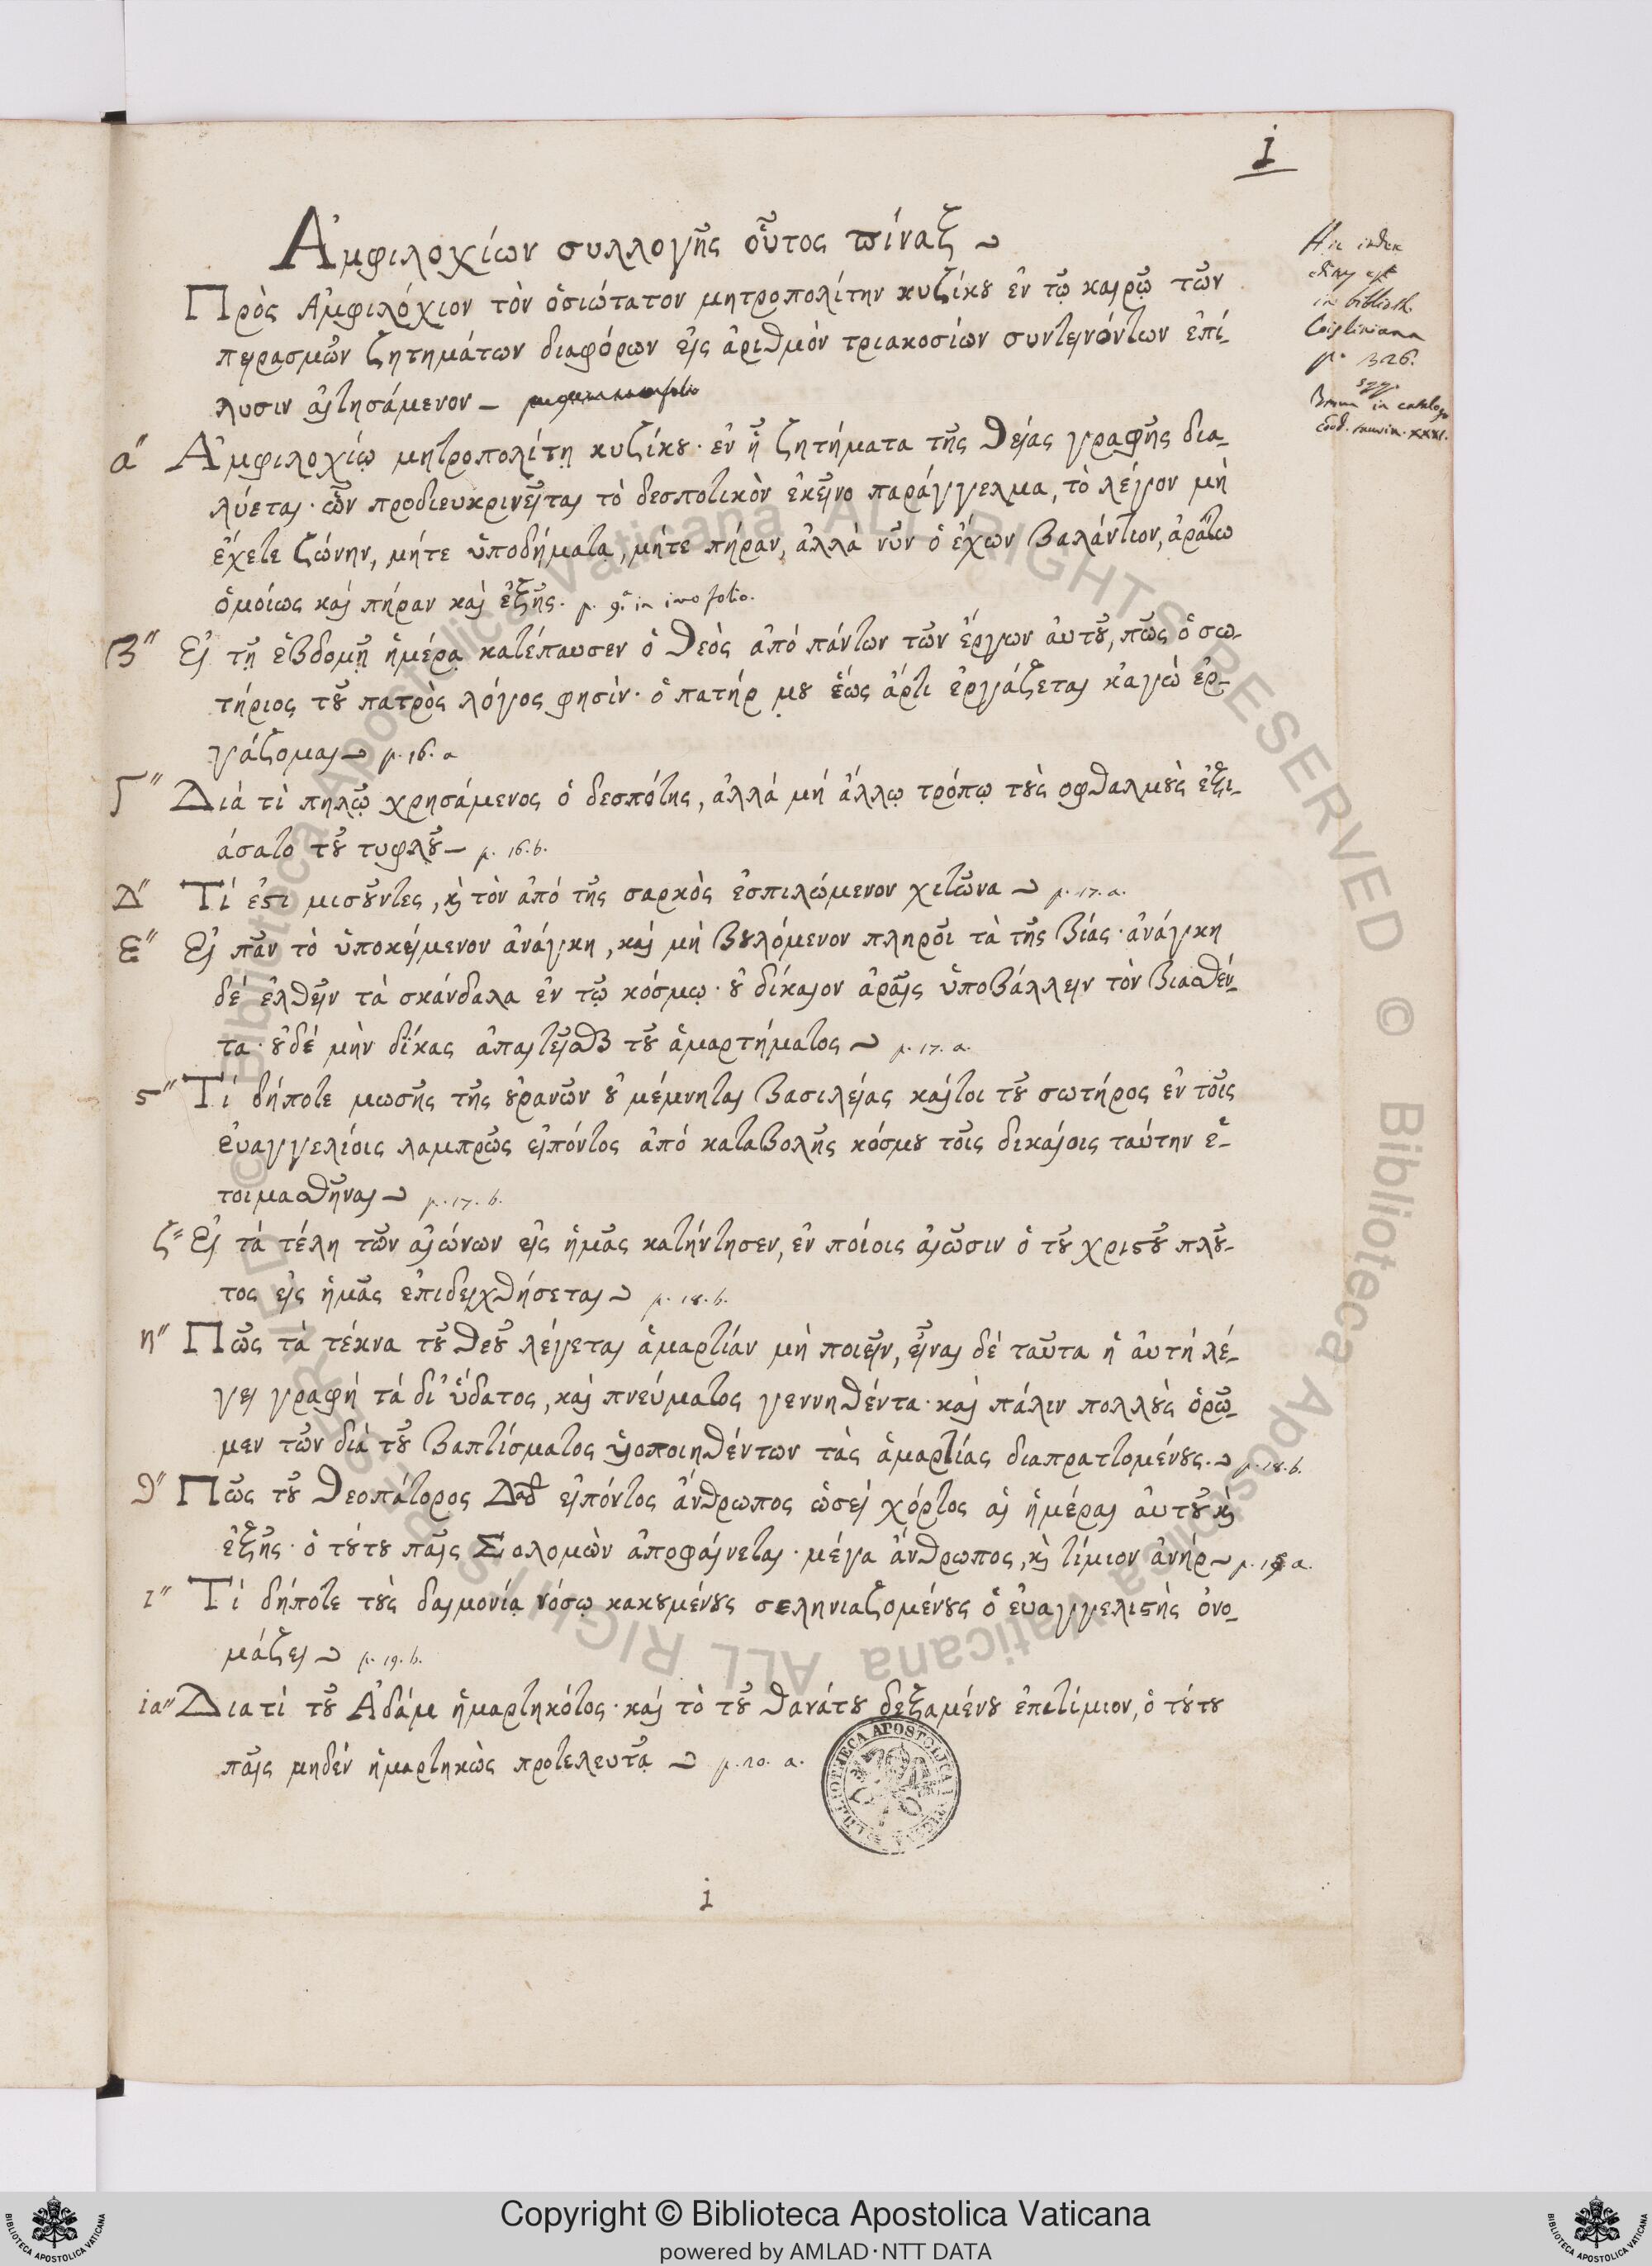 1
Ἀμφιλοχίων συλλογῆς οὗτος πίναξ
Πρὸς Ἀμφιλόχιον τὸν ὁσιώτατον μητροπολίτην κυζίκου ἐν τῷ καιρῷ τῶν
πειρασμῶν ζητημάτων διαφόρων εἰς ἀριθμὸν τριακοσίων συντεινόντων ἐπί-
λυσιν αἰτησάμενον –
Hic index
editus est
in biblioth.
Coisliniana
p. 326.
sqq.
in catalogo
codd. XXXI.
α" Ἀμφιλοχίῳ μητροπολίτῃ κυζίκου· ἐν ᾗ ζητήματα τῆς θείας γραφῆς δια-
λύεται· ὧν προδιευκρινεῖται τὸ δεσποτικὸν ἐκεῖνο παράγγελμα, τὸ λέγον μὴ
ἔχετε ζώνην, μήτε ὑποδήματα, μήτε πήραν, ἀλλὰ νῦν ὁ ἔχων βαλάντιον, ἀράτω
ὁμοίως καὶ πήραν καὶ ἑξῆς. p. 9. in imo folio.
β" Εἰ τῇ ἑβδομῇ ἡμέρᾳ κατέπαυσεν ὁ θεὸς ἀπό πάντων τῶν ἔργων αὐτοῦ, πῶς ὁ σω-
τήριος τοῦ πατρὸς λόγος φησίν· ὁ πατήρ μου ἕως ἄρτι ἐργάζεται κἀγὼ ἐρ-
γάζομαι p. 16. a
γ" Διά τὶ πηλῷ χρησάμενος ὁ δεσπότης, ἀλλά μή ἄλλῳ τρόπῳ τοὺς οφθαλμοὺς ἐξι-
άσατο τοῦ τυφλοῦ – p. 16. b.
Δ" Τί ἐστι μισοῦντες, κὶ τὸν ἀπό τῆς σαρκὸς ἐσπιλώμενον χιτῶνα p. 17. a.
ε" Εἰ πᾶν τὸ ὑποκείμενον ἀνάγκη, καὶ μὴ βουλόμενον πληροῖ τὰ τῆς βίας· ἀνάγκη
δέ ἐλθεῖν τὰ σκάνδαλα ἐν τῷ κόσμῳ· οὐ δίκαιον ἀραῖς ὑποβάλλειν τὸν βιασθέν-
τα· οὐδέ μὴν δίκας ἀπαιτεῖσθαι τοῦ ἁμαρτήματος p. 17. a.
ς" Τί δήποτε μωσῆς τῆς οὐρανῶν οὐ μέμνηται βασιλείας καίτοι τοῦ σωτήρος ἐν τοῖς
εὐαγγελίοις λαμπρῶς εἰπόντος ἀπό καταβολῆς κόσμου τοῖς δικαίοις ταύτην ἑ-
τοιμασθῆναι p. 17. b.
ζ" Εἰ τὰ τέλη τῶν αἰώνων εἰς ἡμᾶς κατήντησεν, ἐν ποίοις αἰῶσιν ὁ τοῦ χριστοῦ πλοῦ-
τος εἰς ἡμᾶς ἐπιδειχθήσεται p. 18. b.
η" Πῶς τὰ τέκνα τοῦ θεοῦ λέγεται ἁμαρτίαν μὴ ποιεῖν, εἶναι δὲ ταῦτα ἡ αὐτή λέ-
γει γραφή τά δι' ὕδατος, καὶ πνεύματος γεννηθέντα· καὶ πάλιν πολλοὺς ὁρῶ-
μεν τῶν διὰ τοῦ βαπτίσματος υἱοποιηθέντων τὰς ἁμαρτίας διαπρατομένους. p. 18. b.
θ" Πῶς τοῦ θεοπάτορος Δαδ εἰπόντος ἄνθρωπος ὡσεί χόρτος αἱ ἡμέραι αὐτοῦ κὶ
ἑξῆς· ὁ τούτου παῖς Σολομὼν ἀποφαίνεται· μέγα ἄνθρωπος, κὶ τίμιον ἀνήρ p. 19 a.
ι" Τί δήποτε τοὺς δαιμονίᾳ νόσῳ κακουμένους σεληνιαζομένους ὁ εὐαγγελιστής ὀνο-
μάζει p. 19. b.
ια" Διατί τοῦ Ἀδάμ ἡμαρτηκότος· καὶ τὸ τοῦ θανάτου δεξαμένου ἐπιτίμιον, ὁ τούτου
παῖς μηδέν ἡμαρτηκὼς προτελευτᾷ p. 20. a.
1
© Biblioteca Apostolica Vaticana ALL RIGHTS RESERVED © Biblioteca Apostolica Vaticana ALL RIGHTS RESERVED
Copyright © Biblioteca Apostolica Vaticana
powered by AMLAD·NTT DATA
BIBLIOTECA APOSTOLICA VATICANA
BIBLIOTECA APOSTOLICA VATICANA